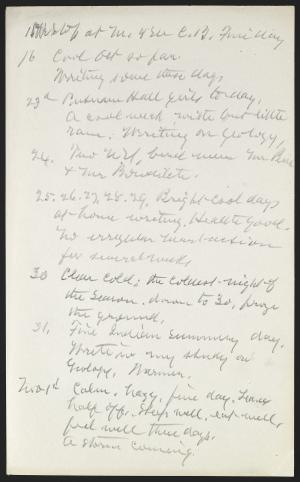 at M. & Eve C. B. Fine day
16 Cool Oct so far.
Writing some these days
23d Putnam Hall girls to-day.
A cool week with but little
rain. Writing on Geology,
24. Two N.Y. bird men Mr
& Mr Bowdish.
25. 26. 27. 28. 29. Bright cool days
at home writing. Health good.
No irregular heart-action
for several weeks
30 Clear cold; the coldest night of
the season, down to 30, froze
the ground.
31. Fine Indian summery day.
Write in my study on
Geology. Warmer.
Nov 1st Calm, hazy, fine day. Leaves
half off. Sleep well, eat well,
feel well these days.
A storm coming.